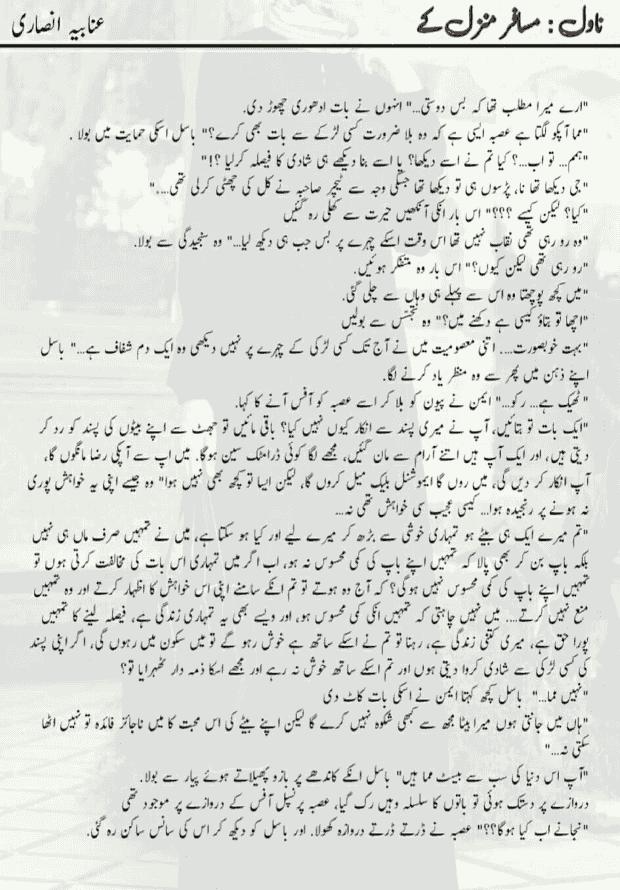 ناول : مسافر منزل کے
عنابیہ انصاری
"ارے میرا مطلب تھا کہ بس دوستی..." انہوں نے بات ادھوری چھوڑ دی.
"مما آپکو لگتا ہے عصبہ ایسی ہے کہ وہ بلا ضرورت کسی لڑکے سے بات بھی کرے؟" باسل اسکی حمایت میں بولا .
"ہمم... تو اب...؟ کیا تم نے اسے دیکھا؟ یا اسے بنا دیکھے ہی شادی کا فیصلہ کر لیا ؟!"
"جی دیکھا تھا نا، پڑسوں ہی تو دیکھا تھا جسکی وجہ سے ٹیچر صاحبہ نے کل کی چھٹی کر لی تھی....."
"کیا؟ لیکن کیسے ؟؟؟" اس بار انکی آنکھیں حیرت سے کھلی رہ گئیں
"وہ رو رہی تھی نقاب نہیں تھا اس وقت اسکے چہرے پر بس جب ہی دیکھ لیا..." وہ سنجیدگی سے بولا.
"رو رہی تھی لیکن کیوں؟" اس بار وہ متفکر ہوئیں.
"میں کچھ پوچھتا وہ اس سے پہلے ہی وہاں سے چلی گئی.
"اچھا تو بتاؤ کیسی ہے دکھنے میں؟" وہ تجسس سے بولیں
"بہت خوبصورت.... اتنی معصومیت میں نے آج تک کسی لڑکی کے چہرے پر نہیں دیکھی وہ ایک دم شفاف ہے..." باسل
اپنے ذہن میں پھر سے وہ منظر یاد کرنے لگا.
"ٹھیک ہے... رکو..." ایمن نے پیون کو بلا کر اسے عصبہ کو آفس آنے کا کہا.
"ایک بات تو بتائیں، آپ نے میری پسند سے انکار کیوں نہیں کیا؟ باقی مائیں تو جھٹ سے اپنے بیٹوں کی پسند کو رد کر
دیتی ہیں، اور ایک آپ ہیں اتنے آرام سے مان گئیں، مجھے لگا کوئی ڈرامٹک سین ہوگا. میں اپ سے آپکی رضا مانگوں گا،
آپ انکار کر دیں گی، میں روں گا ایموشنل بلیک میل کروں گا، لیکن ایسا تو کچھ بھی نہیں ہوا" وہ جیسے اپنی یہ خواہش پوری
نہ ہونے پر رنجیدہ ہوا... کیسی عجیب سی خواہش تھی نہ...
"تم میرے ایک ہی بیٹے ہو تمہاری خوشی سے بڑھ کر میرے لیے اور کیا ہو سکتا ہے، میں نے تمہیں صرف ماں ہی نہیں
بلکہ باپ بن کر بھی پالا کہ تمہیں اپنے باپ کی کمی محسوس نہ ہو، اب اگر میں تمہاری اس بات کی مخالفت کرتی ہوں تو
تمہیں اپنے باپ کی کمی محسوس نہیں ہوگی؟ کہ آج وہ ہوتے تو تم انکے سامنے اپنی اس خواہش کا اظہار کرتے اور وہ تمہیں
منع نہیں کرتے.... میں نہیں چاہتی کہ تمہیں انکی کمی محسوس ہو، اور ویسے بھی یہ تمہاری زندگی ہے، فیصلہ لینے کا تمہیں
پورا حق ہے، میری کتنی زندگی ہے، رہنا تو تم نے اسکے ساتھ ہے خوش رہو گے تو میں سکون میں رہوں گی، اگر اپنی پسند
کی کسی لڑکی سے شادی کروا دیتی ہوں اور تم اسکے ساتھ خوش نہ رہے اور مجھے اسکا ذمہ دار ٹھہرایا تو؟
"نہیں مما..." باسل کچھ کہتا ایمن نے اسکی بات کاٹ دی
"ہاں میں جانتی ہوں میرا بیٹا مجھ سے کبھی شکوہ نہیں کرے گا لیکن اپنے بیٹے کی اس محبت کا میں ناجائز فائدہ تو نہیں اٹھا
سکتی نہ..."
"آپ اس دنیا کی سب سے بیسٹ مما ہیں" باسل انکے کاندھے پر بازو پھیلاتے ہوئے پیار سے بولا.
دروازے پر دستک ہوئی تو باتوں کا سلسلہ وہیں رک گیا، عصبہ پرنسپل آفس کے دروازے پر موجود تھی
"نجانے اب کیا ہوگا؟؟" عصبہ نے ڈرتے ڈرتے دروازہ کھولا. اور باسل کو دیکھ کر اس کی سانس ساکن رہ گئی.